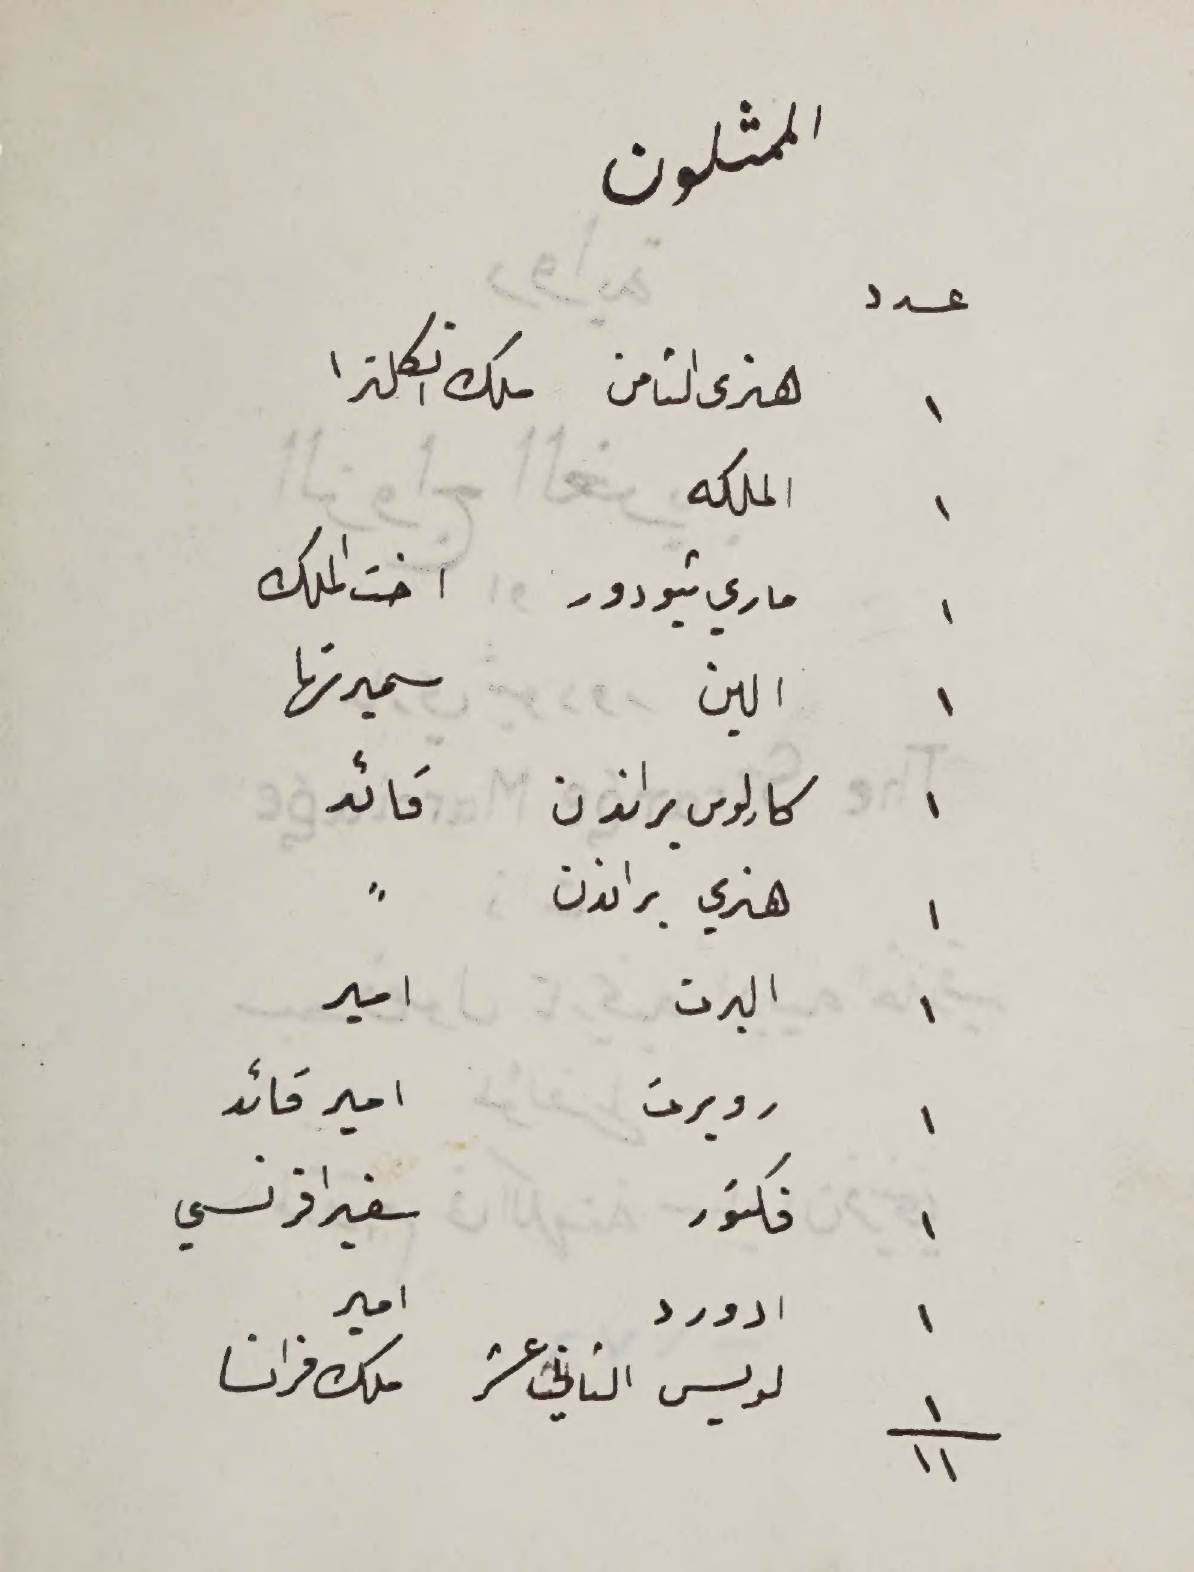 الممثلون
عدد
١ هنري الثامن ملك انكلترا
١ الملكه
١ ماري ثيودور اخت الملك
١ الين سميرتها
١ كارلوس براندن قائد
١ هنري براندن "
١ البرت امير
١ روبرت امير قائد
١ فكتور سفير افرنسي
١ ادورد امير
١ لويس الثاني عشر ملك فرانسا
١١